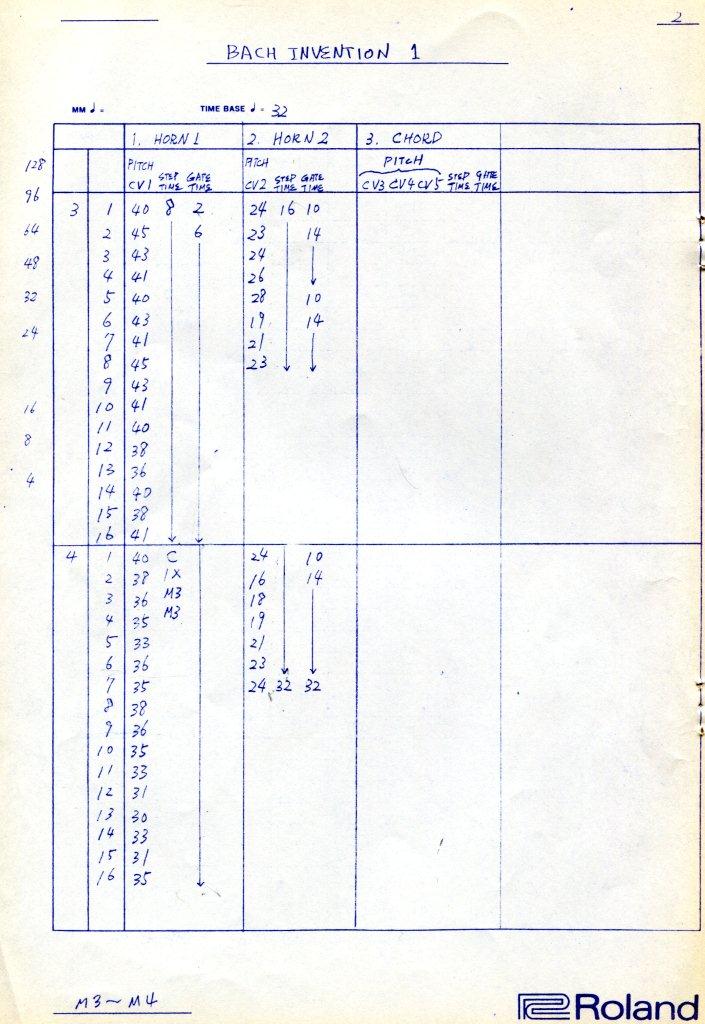 2
BACH INVENTION 1
MM ♩ =
TIME BASE ♩ = 32
1. HORN 1 2. HORN 2 3. CHORD
128 PITCH PITCH PITCH
CV1 STEP TIME GATE TIME CV2 STEP TIME GATE TIME CV3 CV4 CV5 STEP TIME GATE TIME
96
3 1 40 8 2 24 16 10
64 2 45 6 23 14
3 43 24
48 4 41 26
32 5 40 28 10
6 43 19 14
24 7 41 21
8 45 23
9 43
16 10 41
11 40
8 12 38
13 36
4 14 40
15 38
16 41
4 1 40 C 24 10
2 38 1X 16 14
3 36 M3 18
4 35 M3 19
5 33 21
6 36 23
7 35 24 32 32
8 38
9 36
10 35
11 33
12 31
13 30
14 33
15 31
16 35
M3~M4
Roland